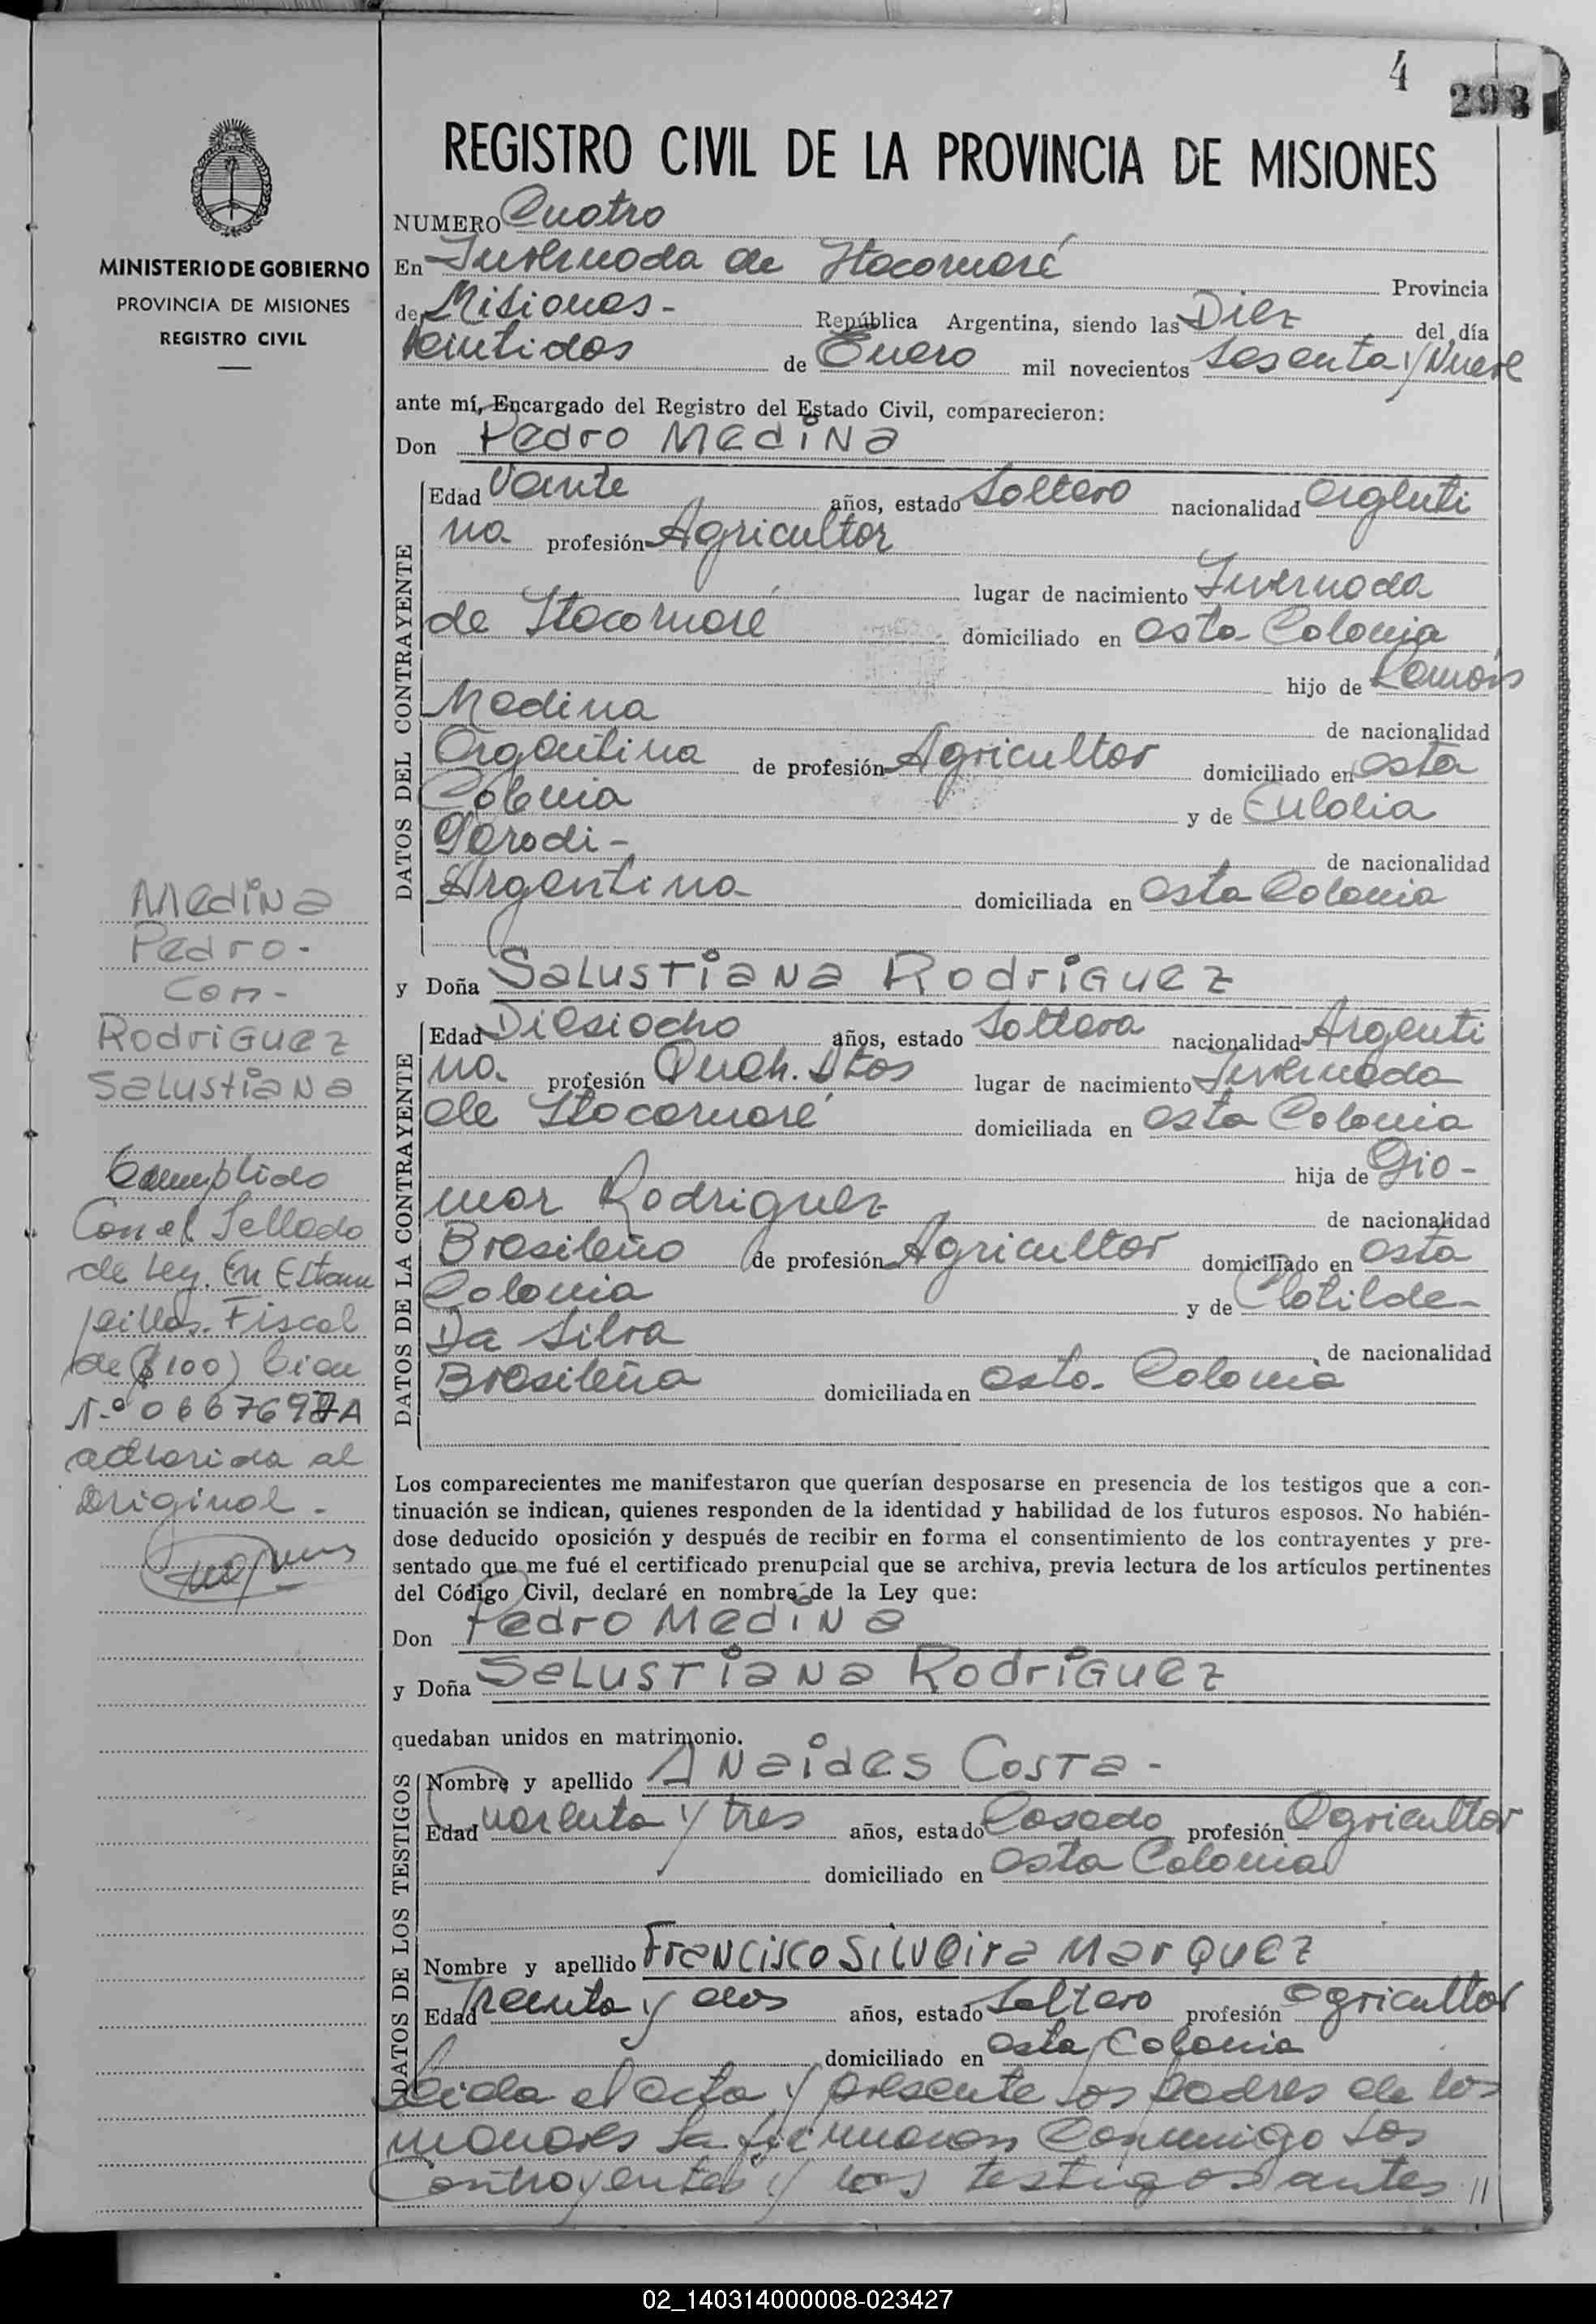 4
293
MINISTERIO DE GOBIERNO
PROVINCIA DE MISIONES
REGISTRO CIVIL
Medina
Pedro.
Con-
Rodriguez
Salustiana
Cumplido
Con el Sellado
de Ley. En Estam
pillas. Fiscal
de ($100) Cien
adherida al
Original-
REGISTRO CIVIL DE LA PROVINCIA DE MISIONES
NUMERO Cuatro
En Invernada de Itacaruaré Provincia
de Misiones- República Argentina, siendo las Diez del día
Veintidos de Enero mil novecientos Sesenta y Nueve
ante mí, Encargado del Registro del Estado Civil, comparecieron:
Don Pedro Medina
DATOS DEL CONTRAYENTE
Edad Veinte años, estado Soltero nacionalidad argenti
na profesión Agricultor
lugar de nacimiento Invernada
de Itacaruaré domiciliado en esta Colonia
hijo de Ramón
Medina de nacionalidad
Argentina de profesión Agricultor domiciliado en esta
Colonia y de Eulalia
de nacionalidad
Argentina domiciliada en esta Colonia
y Doña Salustiana Rodriguez
DATOS DE LA CONTRAYENTE
Edad Diesiocho años, estado Soltera nacionalidad Argenti
na profesión Queh. Dtos lugar de nacimiento Invernada
de Itacaruaré domiciliada en esta Colonia
hija de Gio-
mar Rodriguez de nacionalidad
Brasileño de profesión Agricultor domiciliado en esta
Colonia y de Clotilde-
Da Silva de nacionalidad
Brasileña domiciliada en esta Colonia
Los comparecientes me manifestaron que querían desposarse en presencia de los testigos que a con-
tinuación se indican, quienes responden de la identidad y habilidad de los futuros esposos. No habién-
dose deducido oposición y después de recibir en forma el consentimiento de los contrayentes y pre-
sentado que me fué el certificado prenupcial que se archiva, previa lectura de los artículos pertinentes
del Código Civil, declaré en nombre de la Ley que:
Don Pedro Medina
y Doña Salustiana Rodriguez
quedaban unidos en matrimonio.
DATOS DE LOS TESTIGOS
Nombre y apellido Anaides Costa-
Edad Cuarenta y tres años, estado Casado profesión Agricultor
domiciliado en esta Colonia
Nombre y apellido Francisco Silveira Marquez
Edad Treinta y dos años, estado Soltero profesión agricultor
domiciliado en esta Colonia
Leida el acta y presente los padres de los
menores la firmaron Conmigo los
Contrayentes y los testigos antes //
02_140314000008-023427